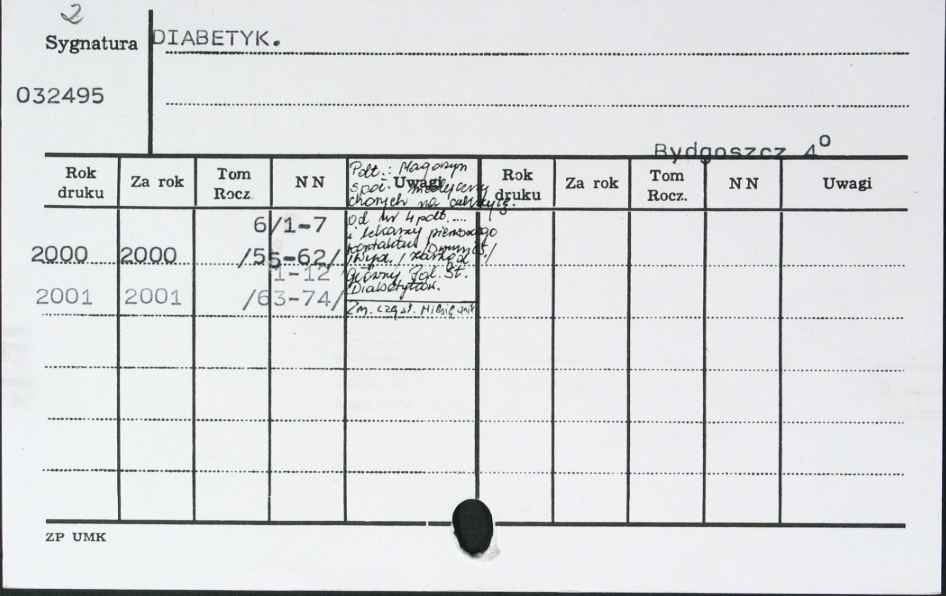 2
Sygnatura DIABETYK.
032495
Bydgoszcz 4°
Rok druku Za rok Tom Rocz. NN Uwagi Rok druku Za rok Tom Rocz. NN Uwagi
Podt.: Magazyn
społ. medyczny
chorych na cukrzycę.
od nr 4 podt. ....
i lekarzy pierwszego
kontaktu.
Główny Pol. St.
Diabetyków.
Zm. częst. Miesięcznik
6/1-7
2000 2000 /55-62/
1-12
2001 2001 /63-74/
ZP UMK